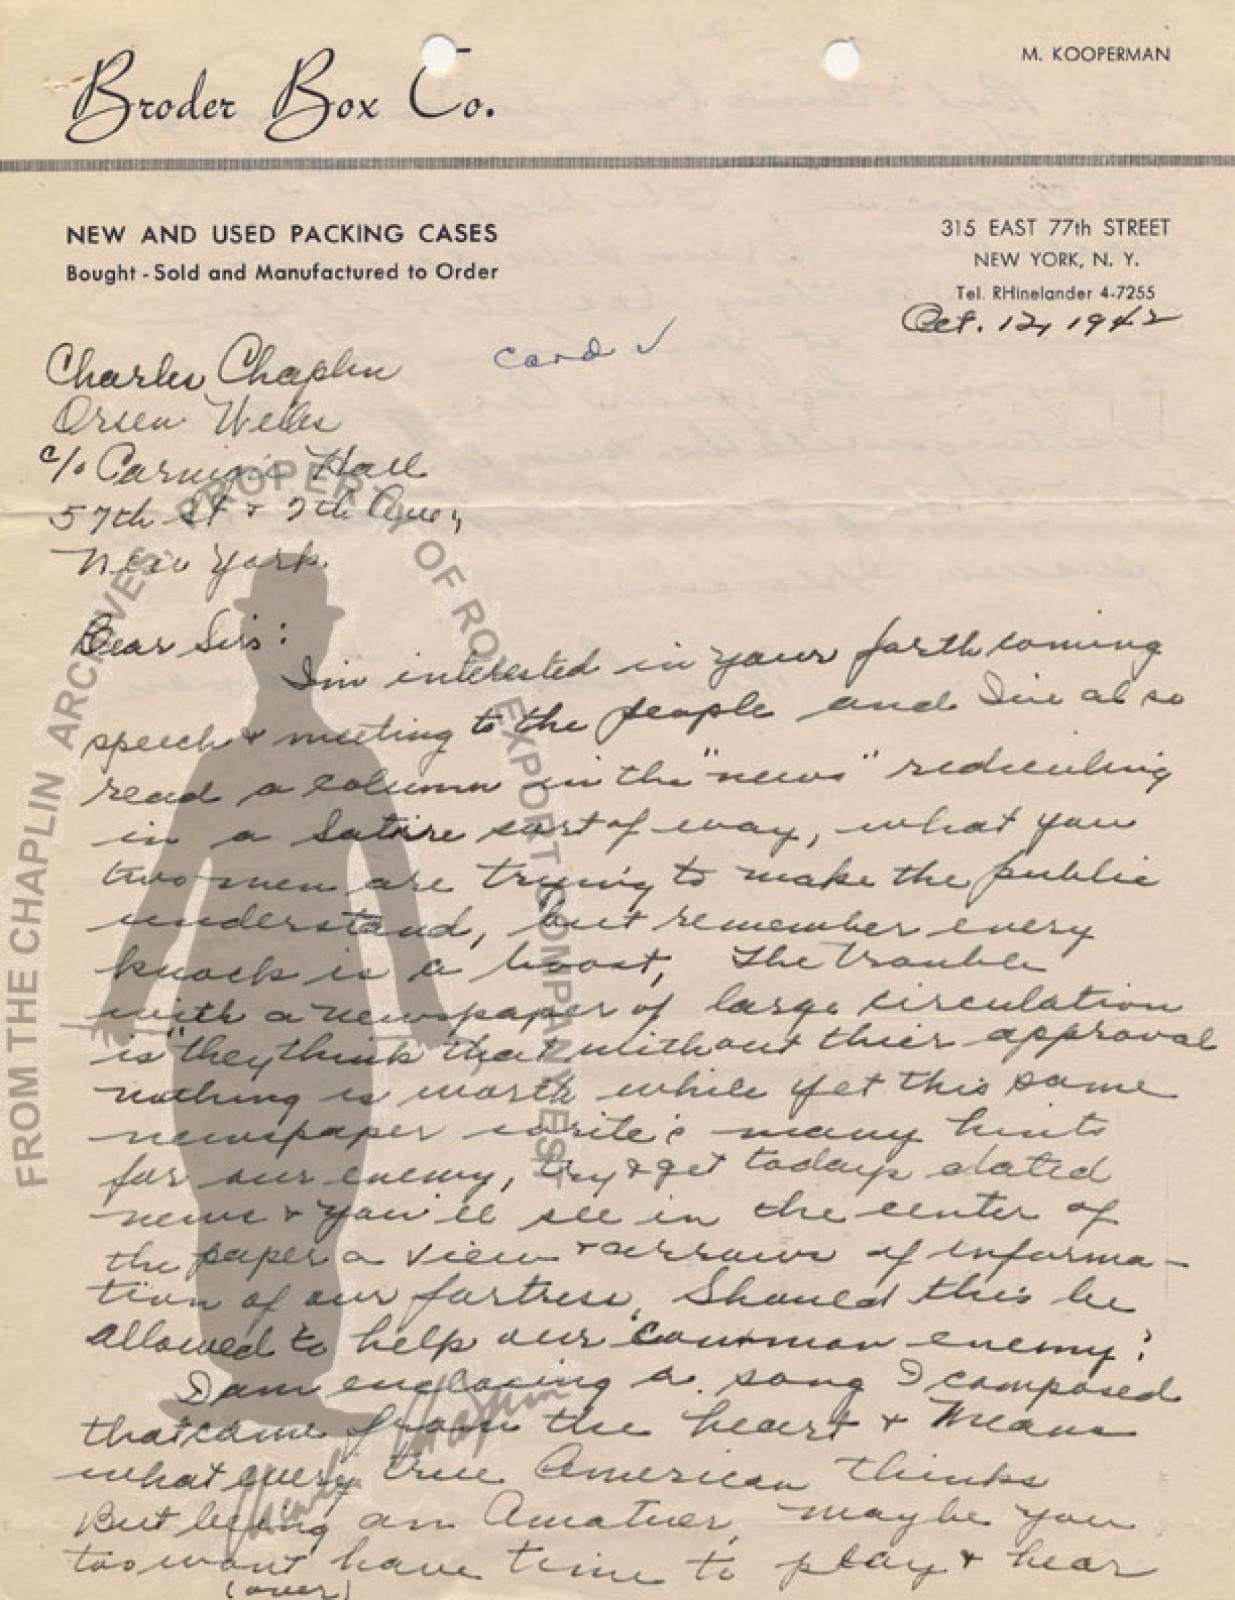 Broder Box Co.
M. KOOPERMAN
NEW AND USED PACKING CASES
Bought - Sold and Manufactured to Order
315 EAST 77th STREET
NEW YORK, N. Y.
Tel. RHinelander 4-7255
Oct. 12, 1942
Card ✓
Charles Chaplin
Orsen Welles
c/o Carnigie Hall
57th St & 7th Ave,
New York.
Dear Sirs:
I'm interested in your forthcoming
speech & meeting to the people and I've also
read a column in the "news" rediculing
in a Satire sort of way, what you
two men are trying to make the public
understand, but remember every
knock is a boost, The trouble
with a newspaper of large circulation
is "they think that without thier approval
nothing is worth while yet this same
newspaper write's many hints
for our enemy, try & get todays dated
news & you'll see in the center of
the paper a view & arrows of informa-
tion of our fortress, Should this be
allowed to help our common enemy?
I am enclosing a song I composed
that came from the heart & Means
what every true American thinks
But being an Amatuer, maybe you
too wont have time to play & hear
(over)
FROM THE CHAPLIN ARCHIVES, PROPERTY OF ROY EXPORT COMPANY EST
Charlie Chaplin